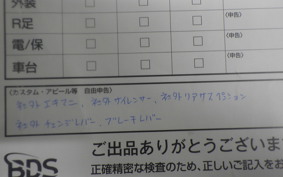 外装 □ □ □ (申告)
R足 □ □ □ (申告)
電/保 □ □ □ (申告)
車台 □ □ □ (申告)
(カスタム・アピール等 自由申告)
社外エキマニ、社外サイレンサー、社外リアサスペンション
社外チェンジレバー、ブレーキレバー
ご出品ありがとうございます
BDS 正確精密な検査のため、正しいご記入をお